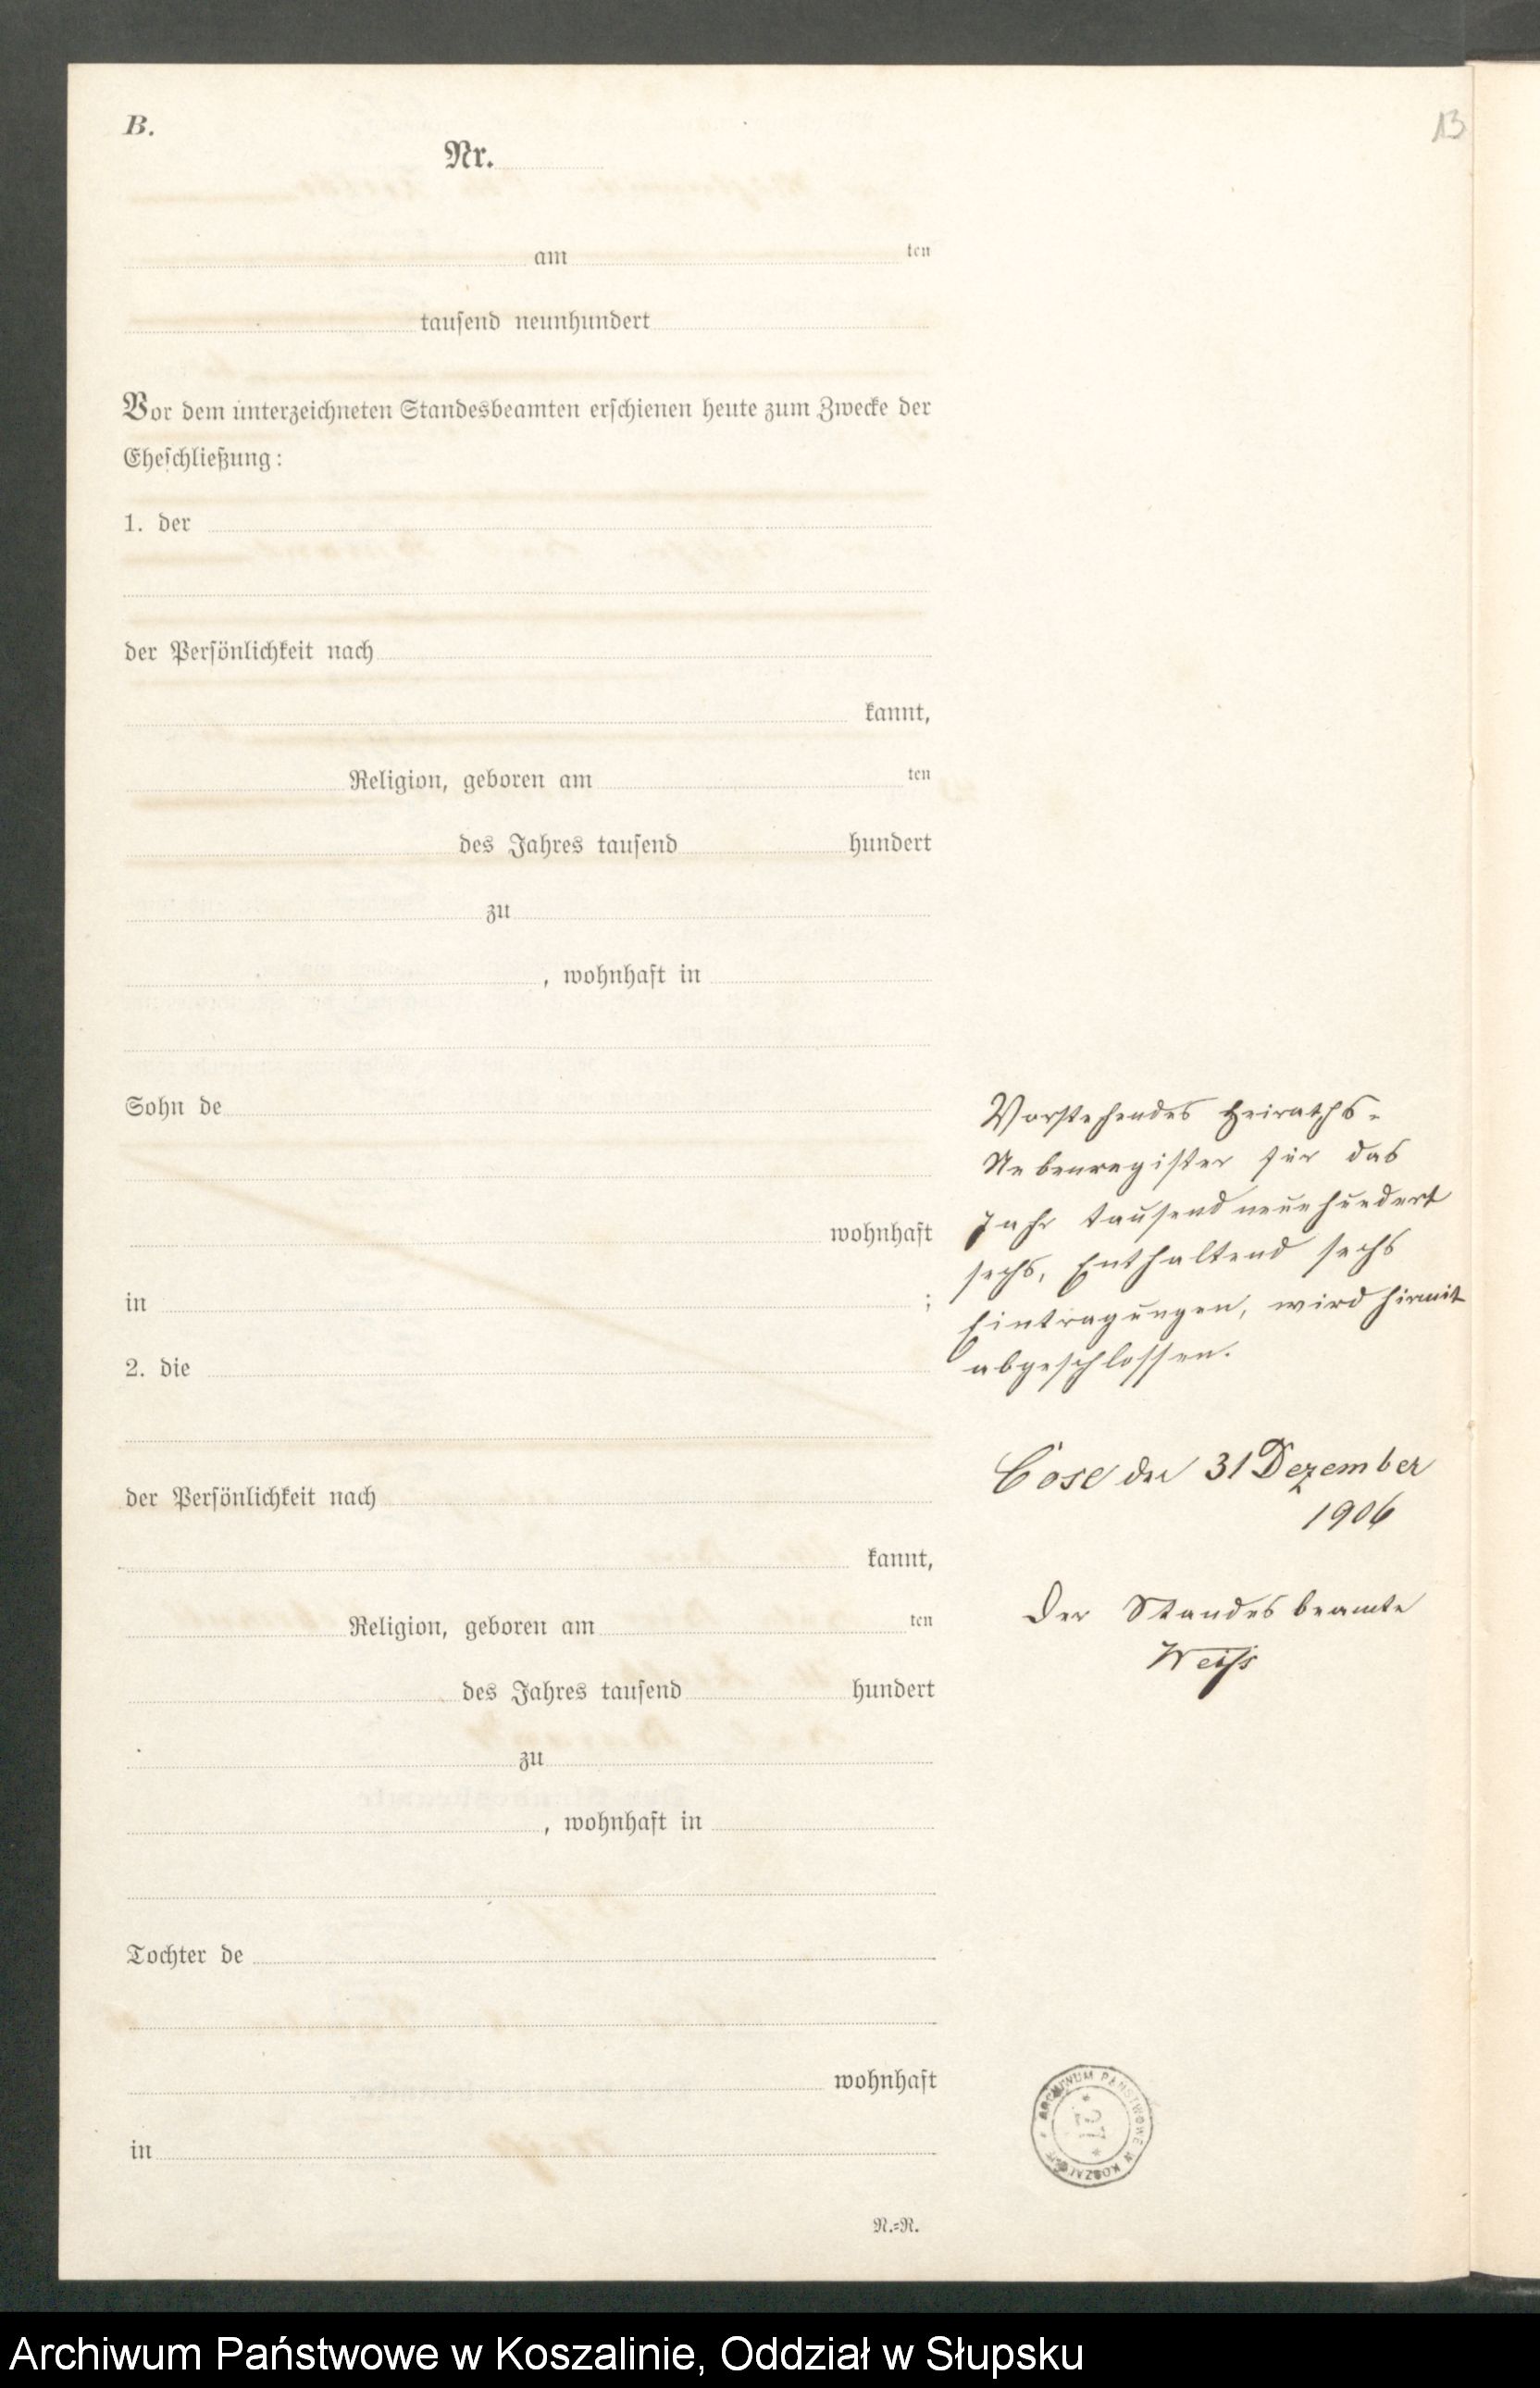 B.
13
Nr.
am ten
tausend neunhundert
Vor dem unterzeichneten Standesbeamten erschienen heute zum Zwecke der
Eheschließung:
1. der
der Persönlichkeit nach
kannt,
Religion, geboren am ten
des Jahres tausend hundert
zu
, wohnhaft in
Sohn de
wohnhaft
in ;
2. die
der Persönlichkeit nach
kannt,
Religion, geboren am ten
des Jahres tausend hundert
zu
, wohnhaft in
Tochter de
wohnhaft
in
N.=R.
Vorstehendes Heiraths-
Nebenregister für das
Jahr tausendneunhundert
sechs, Enthaltend sechs
Eintragungen, wird hirmit
abgeschlossen.
Cose den 31 Dezember
1906
Der Standesbeamte
Weiss
ARCHIWUM PAŃSTWOWE W KOSZALINIE
* 27 *
Archiwum Państwowe w Koszalinie, Oddział w Słupsku